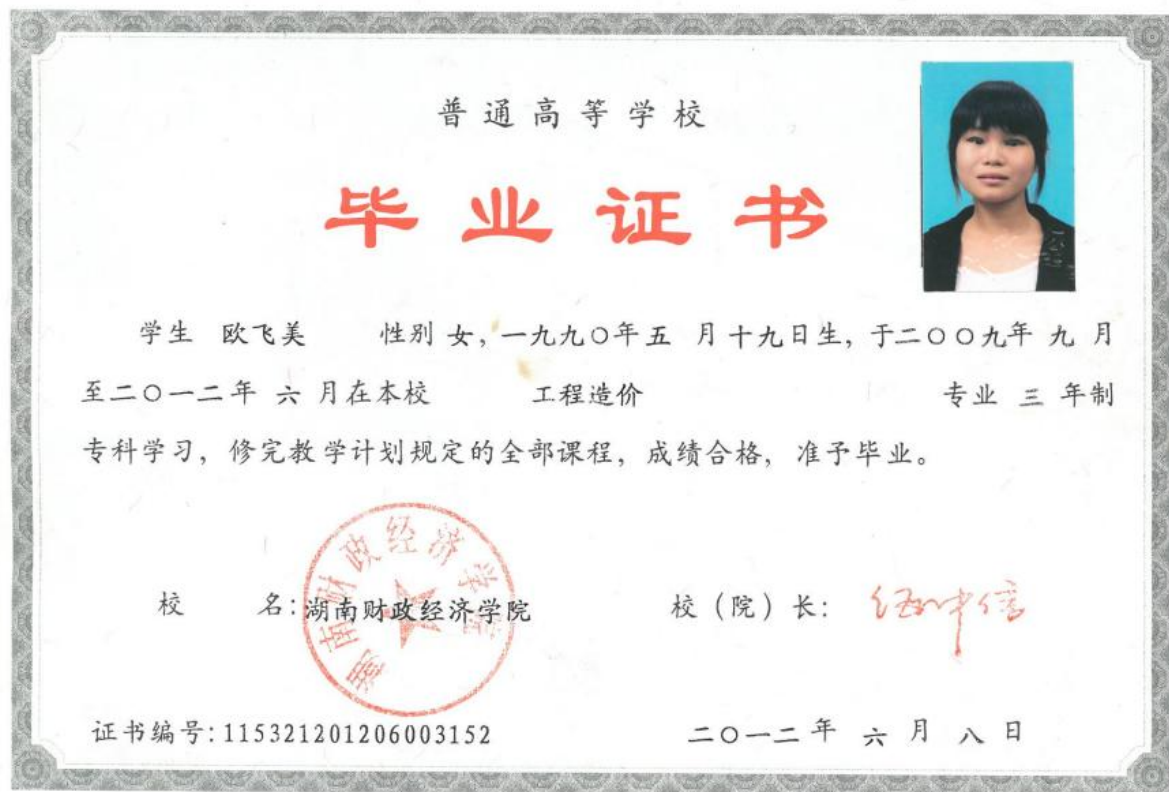 普通高等学校
毕业证书
学生 欧飞美 性别 女, 一九九〇年 五 月十九日生, 于二〇〇九年 九 月
至二〇一二年 六 月在本校 工程造价 专业 三 年制
专科学习, 修完教学计划规定的全部课程, 成绩合格, 准予毕业。
湖南财政经济学院
校 名: 湖南财政经济学院 校（院）长:
证书编号: 115321201206003152 二〇一二年 六 月 八 日